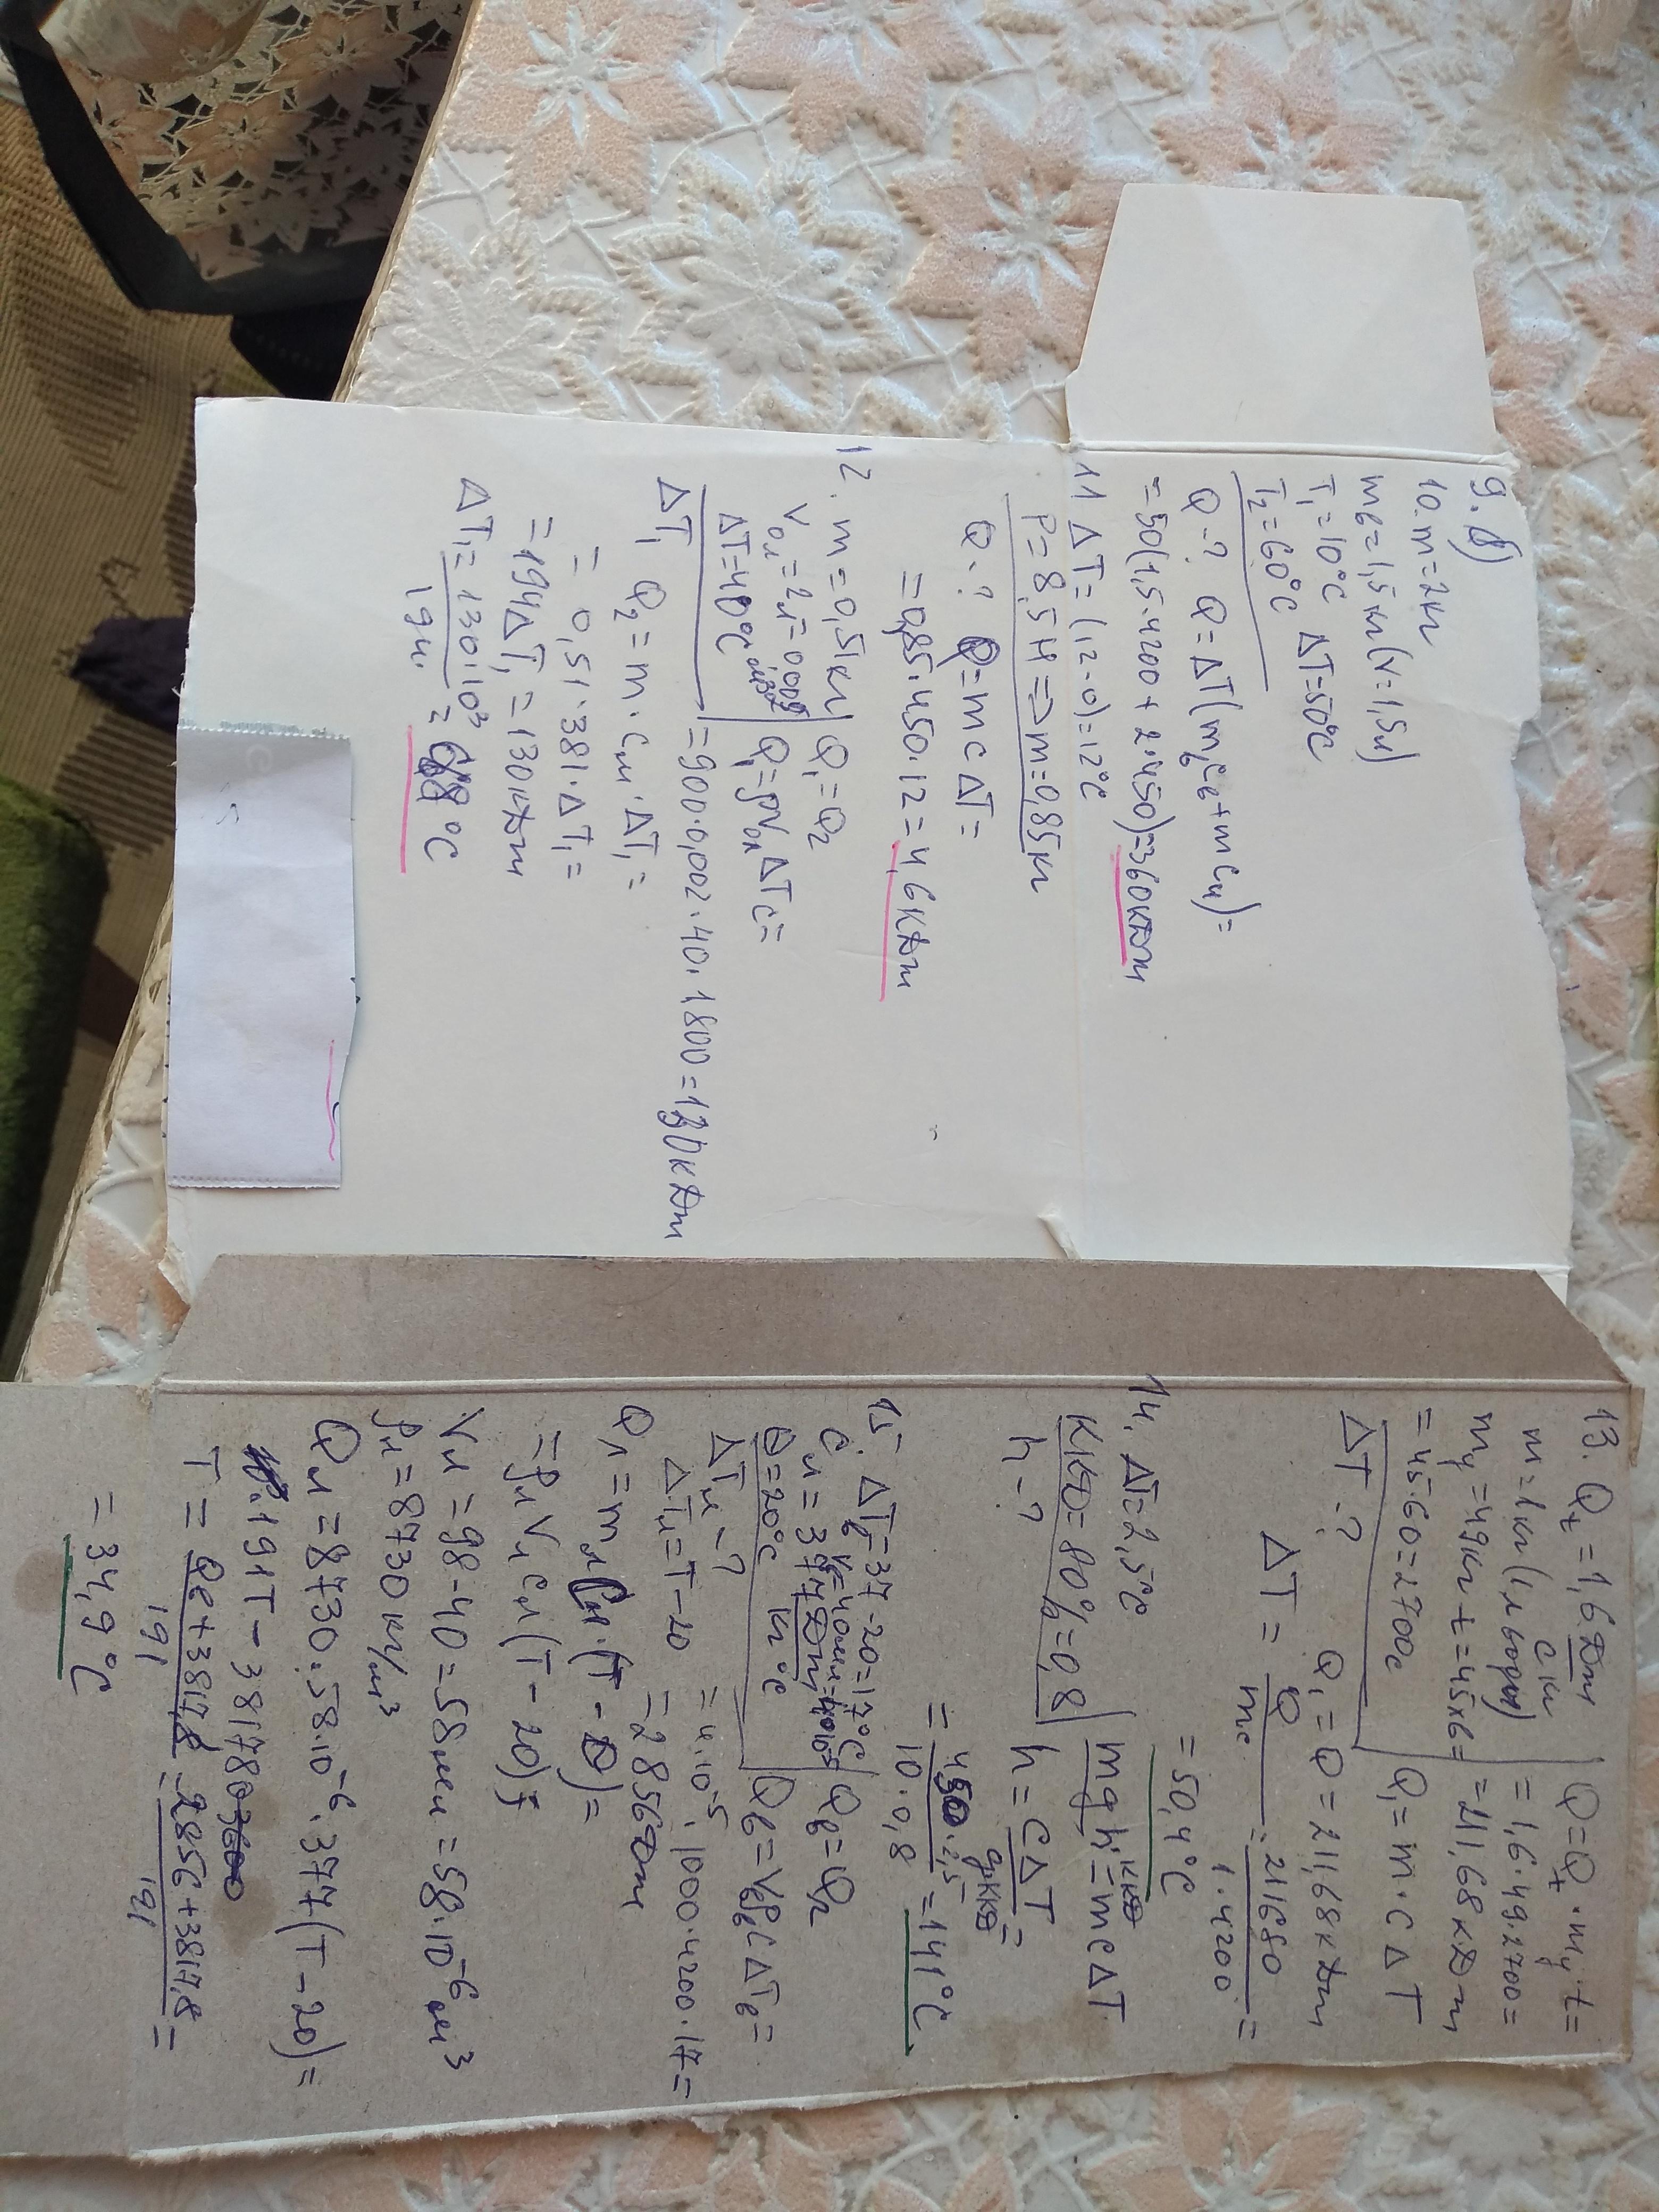 9. б)
10. m = 2кг
mв = 1,5 кг (V = 1,5л)
T₁ = 10°C
T₂ = 60°C ΔT = 50°C
Q - ? Q = ΔT(mвcв + mcч) =
= 50(1,5·4200 + 2·450) = 360кДж
11 ΔT = (12 - 0) = 12°C
P = 8,5 H => m = 0,85кг
Q - ? Q = mcΔT =
= 0,85·450·12 = 4,6кДж
12. m = 0,51кг | Q₁ = Q₂
Vол = 2л = 0,002 | Q₁ = ρVолΔTc =
ΔT = 40°C | = 900·0,002·40·1800 = 130кДж
ΔT₁ Q₂ = m·cм·ΔT₁ =
= 0,51·381·ΔT₁ =
= 194ΔT₁ = 130кДж
ΔT₁ = 130·10³ / 194 = °C
13. Qt = 1,6 Дж / с кг | Q = Qt·mч·t =
m = 1кг (1л воды) | = 1,6·49·2700 =
mч = 49кг t = 45x60 = | = 211,68кДж
= 45·60 = 2700c
ΔT - ? | Q₁ = m·c ΔT
Q₁ = Q = 211,68кДж
ΔT = Q / mc = 211680 / 1·4200 =
= 50,4°C
14. ΔT = 2,5°C | mgh = mcΔT
КПД = 80% = 0,8
h - ? h = cΔT / gКПД =
= 450·2,5 / 10·0,8 = 141°C
15. ΔTв = 37 - 20 = 17°C | Qв = Q₂
Vв = 40мл = 4·10⁻⁵
cм = 377 Дж / кг °C | Qв = VвρвcΔTв =
θ = 20°C
ΔTм - ? = 4·10⁻⁵·1000·4200·17 =
ΔTм = T - 20 = 2856Дж
Qм = mмcм·(T - θ) =
= ρмVмcм(T - 20)
Vм = 98 - 40 = 58мл = 58·10⁻⁶м³
ρм = 8730 кг/м³
Qм = 8730·58·10⁻⁶·377(T - 20) =
191T - 3817,8
T = Qв + 3817,8 / 191 = 2856 + 3817,8 / 191 =
= 34,9°C